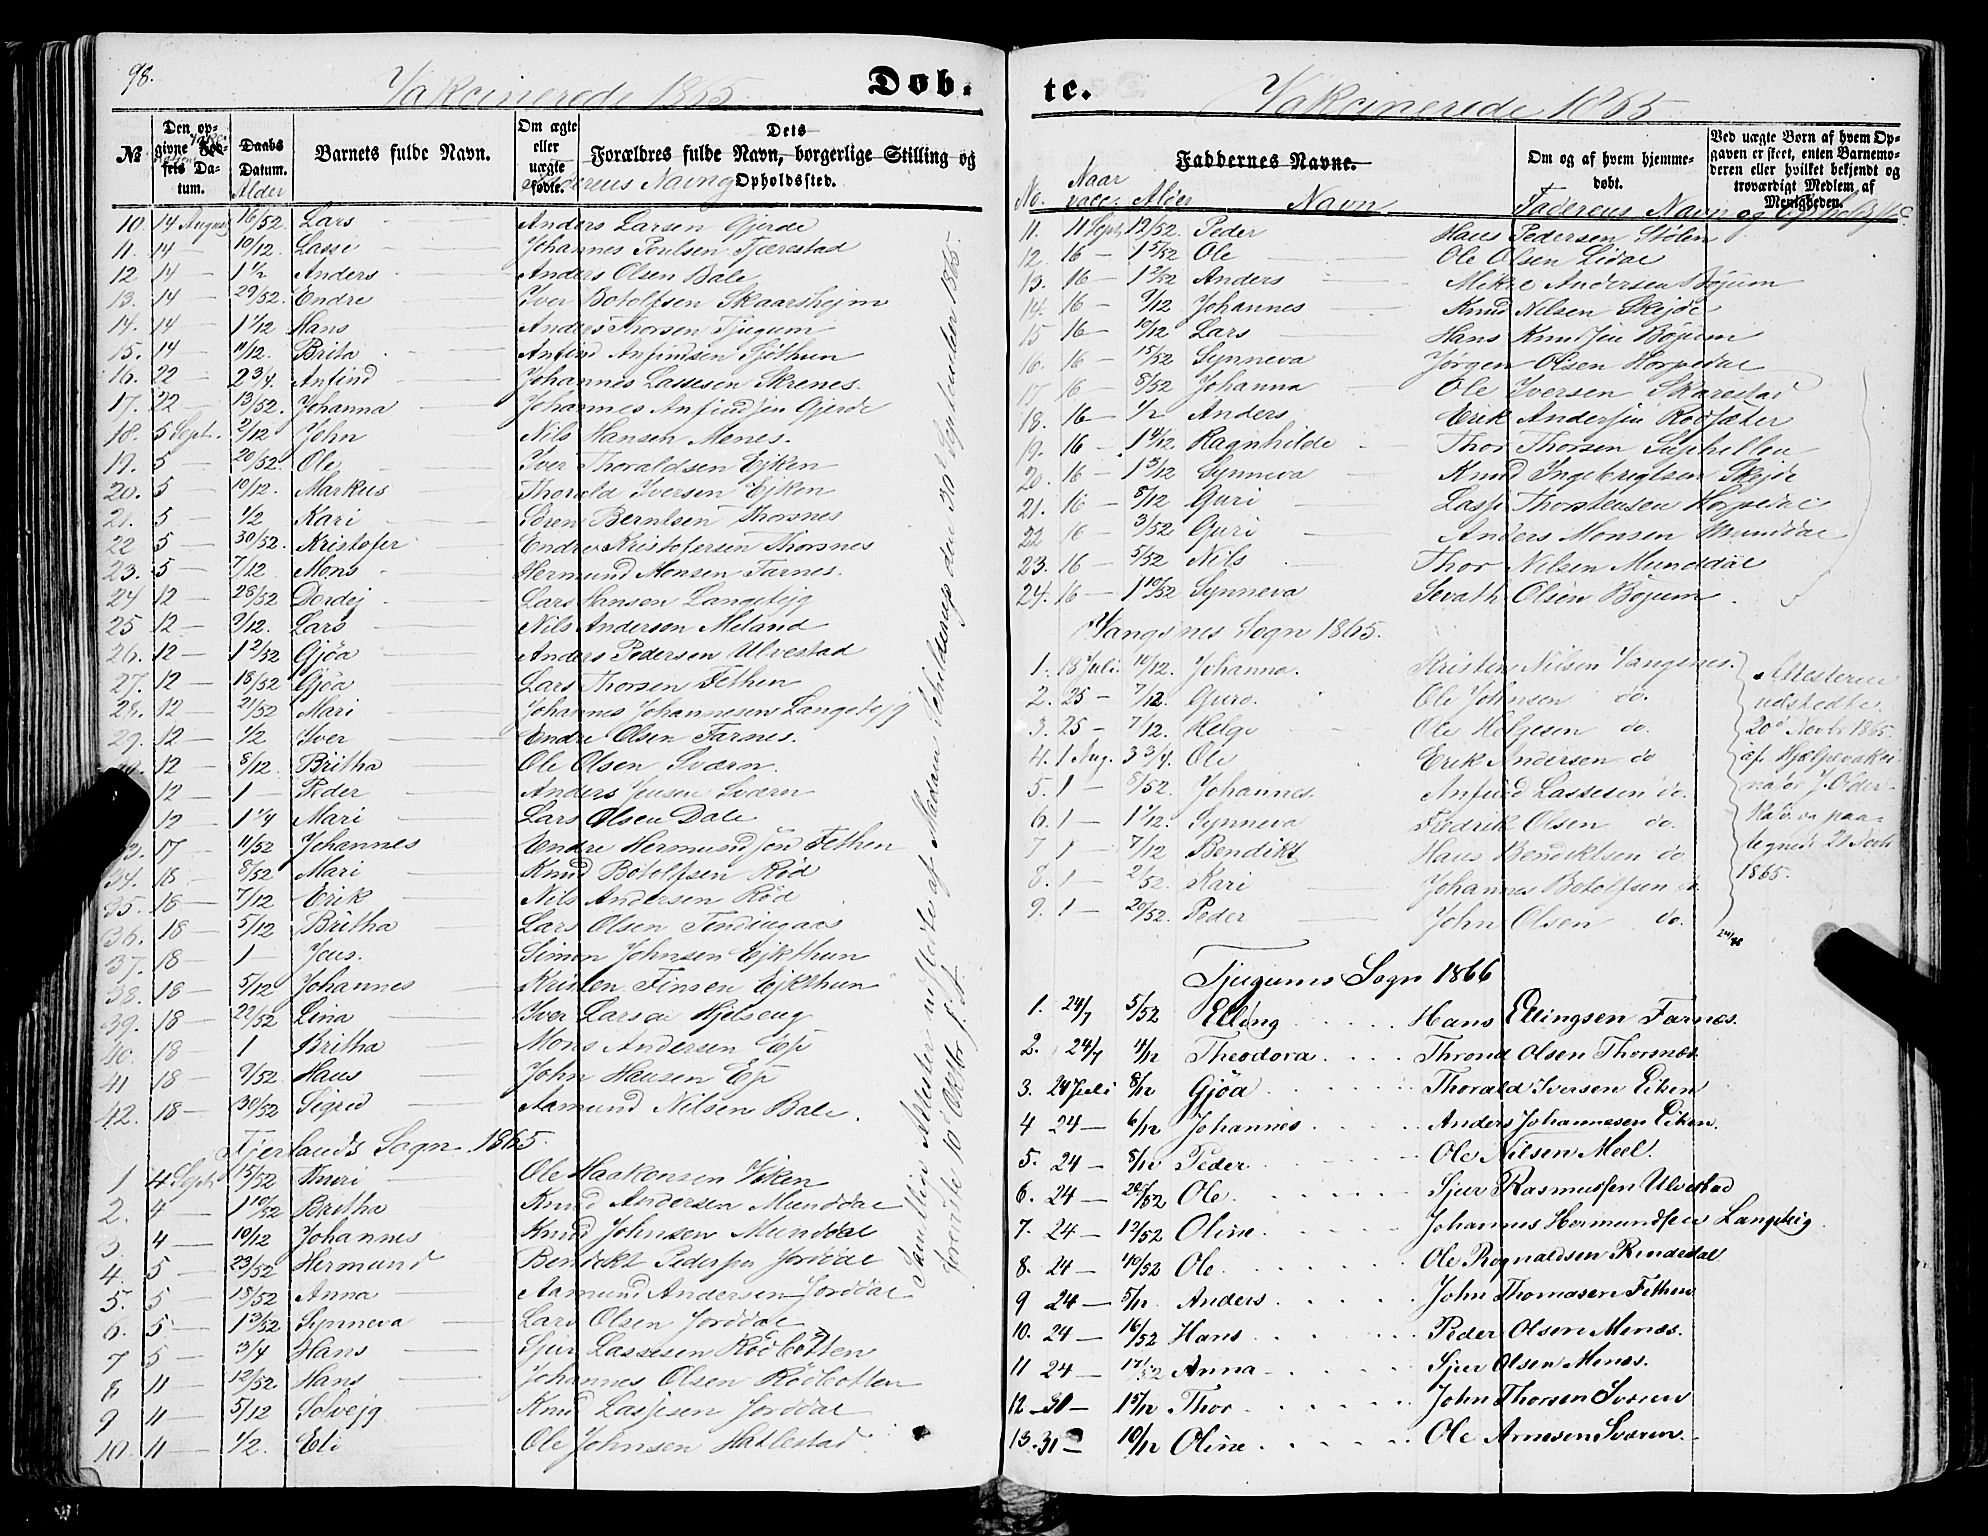 98.
Vakcinerede 1865.
Døb-
№
Den opgivne Fødsels Datum.
Daabs Datum.
Alder
Barnets fulde Navn.
Om ægte eller uægte fødte.
Dets Forældres fulde Navn, borgerlige Stilling og Opholdssted.
10. 14 August 16/52 Lars Anders Larsen Gjerde
11. 14 — 10/12. Lasse Johannes Poulsen Tjærestad
12 14 — 1 1/2 Anders Anders Olsen Bale
13. 14 — 29/52. Endre Iver Botolfsen Skaarshejm
14. 14 — 1 1/12 Hans Anders Thorsen Tjugum
15. 14 — 11/12. Brita Anfind Anfindsen Sjøthun
16. 22 — 2 3/4. Anfind Johannes Lassesen Skrenes.
17. 22 — 13/52. Johanna Johannes Anfindsen Gjerde
18. 5 Sept. 2/12 John Nils Hansen Menes.
19. 5 — 20/52. Ole Iver Thoraldsen Ejken
20. 5 — 10/12. Markus Thorald Iversen Ejken
21. 5 — 1/2 Kari Sören Berntsen Thorsnes
22 5 — 30/52. Kristofer Endre Kristofersen Thorsnes
23. 5 — 7/12 Mons Hermund Monsen Farnes.
24 12 — 28/52 Dordej Lars Hansen Langetejg
25 12 — 9/12. Lars Nils Anderson Meland
26. 12 — 1 2/52 Gjöa Anders Pedersen Ulvestad
27. 12 — 18/52 Gjöa Lars Thorsen Fethen
28. 12 — 21/52 Mari Johannes Johannesen Langetejg
29. 12 — 1/2 Iver Endre Olsen Farnes.
12 — 8/12. Britha Ole Olsen Sværn.
12 — 1 — Peder Anders Jensen Sværn
12 — 1 1/4 Mari Lars Olsen Dale
3. 17 — 11/52 Johannes Endre Hermundsen Fethen
34. 18 — 8/52 Mari Knud Botolfsen Röd
35. 18 — 7/12 Erik Nils Andersen Röd
36. 18 — 5/12 Britha Lars Olsen Tendingaas
37. 18 — 1 — Jens. Simon Johnsen Ejkthun
38. 18 — 5/12 Johannes Kristen Finsen Ejkthun
39. 18 — 22/52 Lina Iver Larsen Hjelseng
40. 18 — 1 Britha Mons Andersen Ese
41 18 — 9/52 Hans John Hansen Ese
42. 18 — 30/52 Segred Aamund Nilsen Bale.
Fjerlands Sogn 1865.
1 4 Sept. 15/52 Guri Ole Haakonsen Viken
2. 4 — 1 10/52 Britha Knud Andersen Munddal
3. 4 — 10/12 Johannes Knud Johnsen Munddal
4. 5 — 23/52 Hermund Bendikt Pedersen Jorddal
5. 5 — 18/52 Anna Aamund Andersen Jorddal
6. 5 — 1 3/52 Synneva Lars Olsen Jorddal
7 5 — 3/4 Hans Sjur Lassesen Rödbotten
8 11 — 12/52. Hans Johannes Olsen Rödbotten
9 11 — 5/12 Solvejg Knud Lassesen Jorddal
10. 11 — 1/2. Eli Ole Johnsen Hatlestad.
Samtlige Attester udstedte af Madam Schildterup den 30t September 1865.
te.
Vakcinerede 1865
Faddernes Navne.
Om og af hvem hjemmedøbt.
Ved uægte Børn af hvem Opgaven er skeet, enten Barnemoderen eller hvilket bekjendt og troværdigt Medlem af Menigheden.
No. Naar vacc. Alder Navn Faderens Navn og Opholdsst.
11. 11 Sept. 12/52. Peder Hans Pedersen Stølen
12. 16 — 1 5/52 Ole Ole Olsen Lidal
13. 16 — 1 2/52 Anders Mikkel Andersen Bøjum
14. 16 — 9/12 Johannes Knud Nilsen Skejde
15 16 — 10/12 Lars Hans Knudsen Bøjum
16. 16 — 15/52 Synneva Jørgen Olsen Horpedal
17 16 — 8/52 Johanna Ole Iversen Skarestad
18. 16 — 1/2 Anders Erik Andersen Rødsæter
19. 16 — 1 4/12 Ragnhilde Thor Thorsen Suphellen
20. 16 — 1 3/12 Synneva Knud Ingebrigtsen Skejde
21. 16 — 8/12 Guri Lasse Thorstensen Horpedal
22 16 — 3/52 Guri Anders Monsen Munddal
23. 16 — 5/52 Nils Thor Nilsen Munddal
24. 16 — 1 10/52 Synneva Sevath Olsen Bøjum.
Vangsnes Sogn 1865.
1. 18 Juli. 10/12. Johanna. Kristen Nilsen Vangsnes.
2. 25 — 7/12. Guro. Ole Johnsen do.
3. 25 — 7/12. Helge Ole Helgesen do.
4. 1 Aug. 3 3/4. Ole Erik Andersen do
5. 1 — 8/52. Johannes. Anfind Lassesen do.
6. 1 — 1 1/12. Synneva Fredrik Olsen do.
7 1 — 7/12 Bendikt Hans Bendiktsen do
8. 1 — 2/52. Kari Johannes Botolfsen do
9. 1 — 20/52. Peder John Olsen do.
Attesterne
udstedte
20d Novbr 1865.
af Hjælpevakci-
natør J. Oder-
paa-
tegnede 21 Novb
1865.
Tjugums Sogn 1866
1. 24/7 5/52 Elling Hans Ellingsen Farnes.
2. 24/7 4/12 Theodora Thrond Olsen Thorsnæs
3. 24 Juli 8/12 Gjöa Thorald Iversen Eiken
4 24 — 6/12 Johannes Anders Johannesen Eiken.
5. 24 — 8/12 Peder Ole Nilsen Meel.
6. 24 — 20/52 Ole. Sjur Rasmussen Ulvestad
7. 24 — 13/52 Oline Johannes Hermundsen Langeteig.
8. 24 — 40/52 Ole. Ole Rognaldsen Rendedal
9 24 — 5/12. Anders John Thomasen Fethen
10. 24 — 16/52 Hans Peder Olsen Menæs.
11 24 — 17/52 Anna Sjur Olsen Menæs.
12 — 31 — 15/12 Thor John Thorsen Sværen
13. 31 — 10/12 Oline Ole Arnesen Sværen.